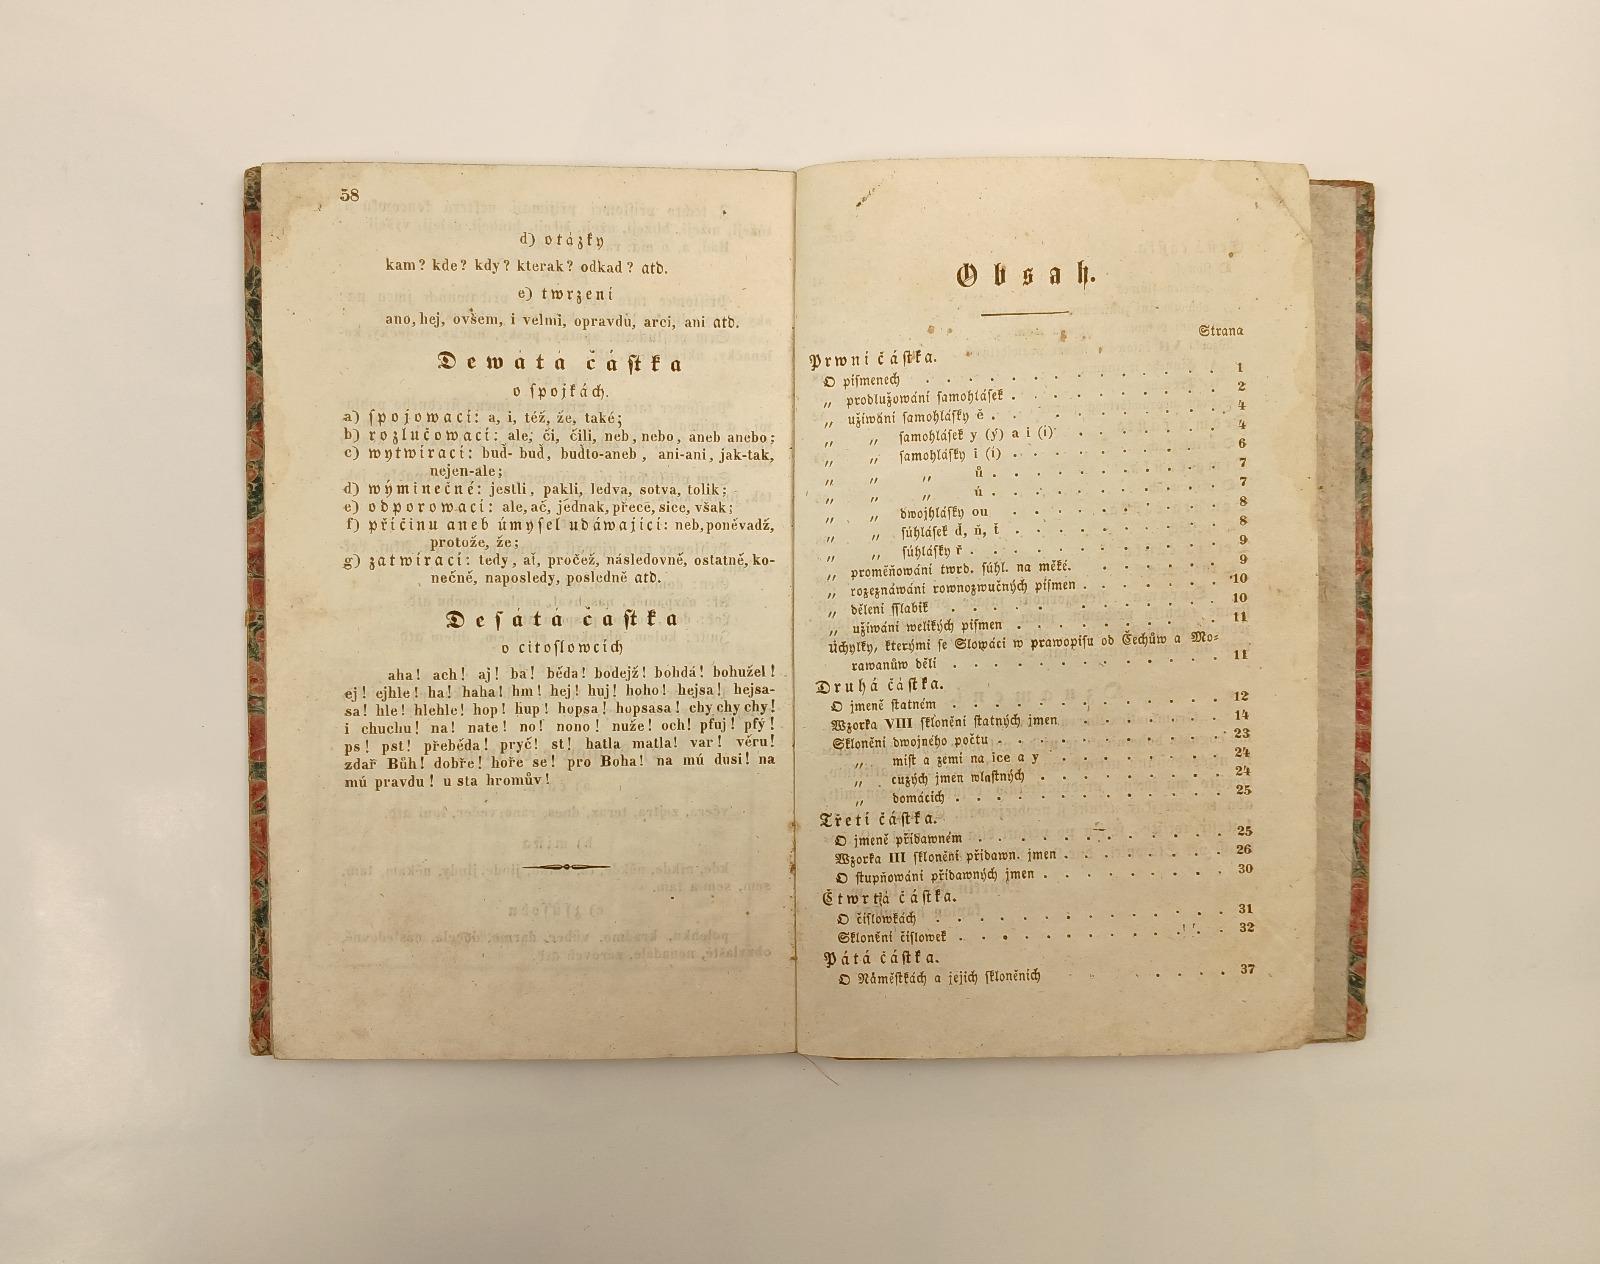 58
d) otázky
kam? kde? kdy? kterak? odkad? atd.
e) twrzení
ano, hej, ovšem, i velmi, opravdu, arci, ani atd.
Dewátá částka
o spojkách.
a) spojowací: a, i, též, že, také;
b) rozlučowací: ale, či, čili, neb, nebo, aneb anebo;
c) wytwírací: buď- buď, buďto-aneb, ani-ani, jak-tak,
nejen-ale;
d) wýminečné: jestli, pakli, ledva, sotva, tolik;
e) odporowací: ale, ač, jednak, přece, sice, však;
f) příčinu aneb úmysel udáwající: neb, poněvadž,
protože, že;
g) zatwírací: tedy, ať, pročež, následovně, ostatně, ko-
nečně, naposledy, posledně atd.
Desátá částka
o citoslowcích
aha! ach! aj! ba! běda! bodejž! bohdá! bohužel!
ej! ejhle! ha! haha! hm! hej! huj! hoho! hejsa! hejsa-
sa! hle! hlehle! hop! hup! hopsa! hopsasa! chy chy chy!
i chuchu! na! nate! no! nono! nuže! och! pfuj! pfý!
ps! pst! přeběda! pryč! st! hatla matla! var! věru!
zdař Bůh! dobře! hoře se! pro Boha! na mú dusi! na
mú pravdu! u sta hromův!
Obsah.
Strana
Prwní částka.
O písmenech . . . 1
„ prodlužowání samohlásek . . . 2
„ užíwání samohlásky ě . . . 4
„ „ samohlásek y (ý) a i (í) . . . 4
„ „ samohlásky i (í) . . . 6
„ „ „ ů . . . 7
„ „ „ ú . . . 7
„ „ dwojhlásky ou . . . 8
„ „ súhlásek ď, ň, ť . . . 8
„ „ súhlásky ř . . . 9
„ proměňowání twrd. súhl. na měké. . . . 9
„ rozeznáwání rownozwučných písmen . . . 10
„ dělení sslabik . . . 10
„ užíwání welikých písmen . . . 11
Úchylky, kterými se Slowáci w prawopisu od Čechůw a Mo-
rawanůw dělí . . . 11
Druhá částka.
O jmeně statném . . . 12
Wzorka VIII sklonění statných jmen . . . 14
Sklonění dwojného počtu . . . 23
„ míst a zemí na ice a y . . . 24
„ cuzých jmen wlastných . . . 24
„ domácích . . . 25
Třetí částka.
O jmeně přídawném . . . 25
Wzorka III sklonění přídawn. jmen . . . 26
O stupňowání přídawných jmen . . . 30
Čtwrtá částka.
O číslowkách . . . 31
Sklonění číslowek . . . 32
Pátá částka.
O Náměstkách a jejich skloněních . . . 37